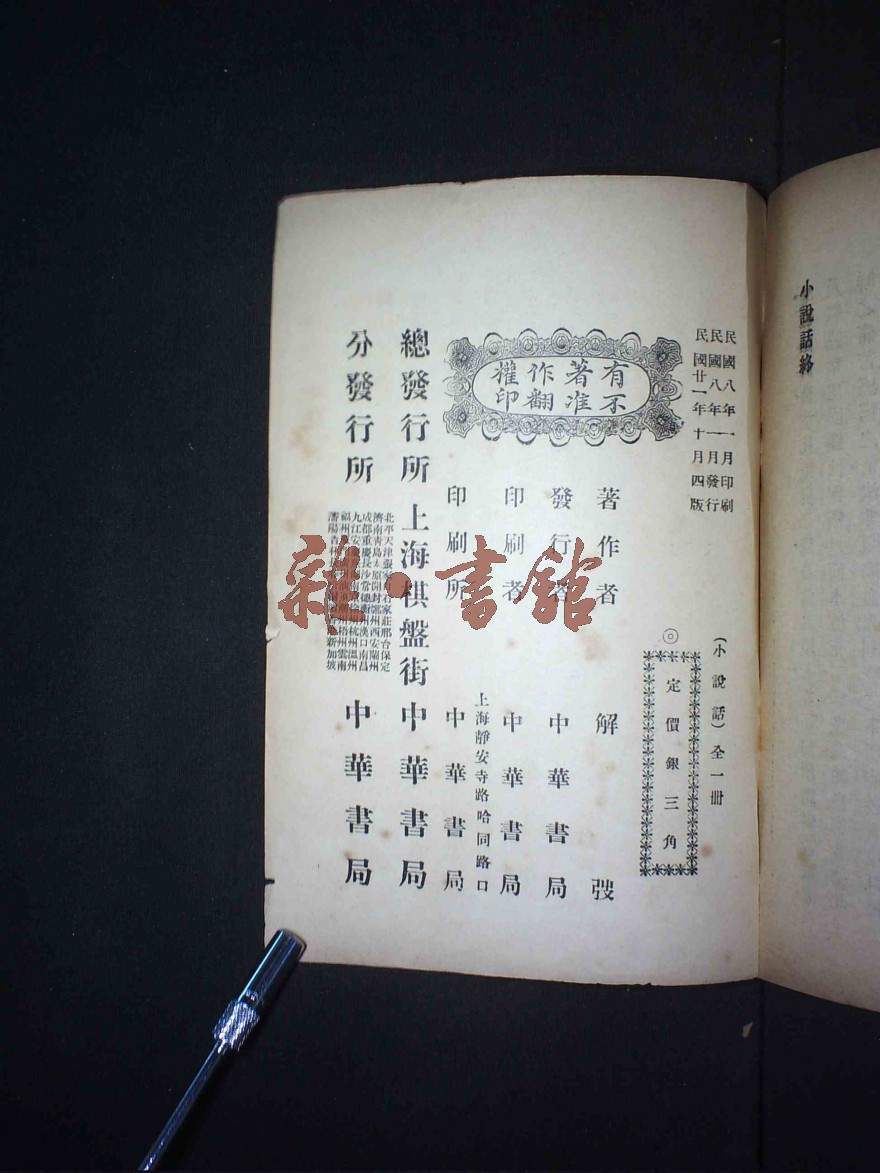 小說話終
民國八年一月印刷
民國八年一月發行
民國廿一年十月四版
有著作權
不准翻印
（小說話）全一冊
◎定價銀三角
著作者 解弢
發行者 中華書局
印刷者 中華書局
印刷所 上海靜安寺路哈同路口 中華書局
總發行所 上海棋盤街 中華書局
分發行所
北平天津張家口石家莊邢台保定
濟南青島太原開封鄭州西安蘭州
成都重慶長沙常德衡州漢口南昌
九江安 南 杭州溫州
福州 潮州梧州雲南
瀋陽吉林 新加坡
中華書局
雜·書館